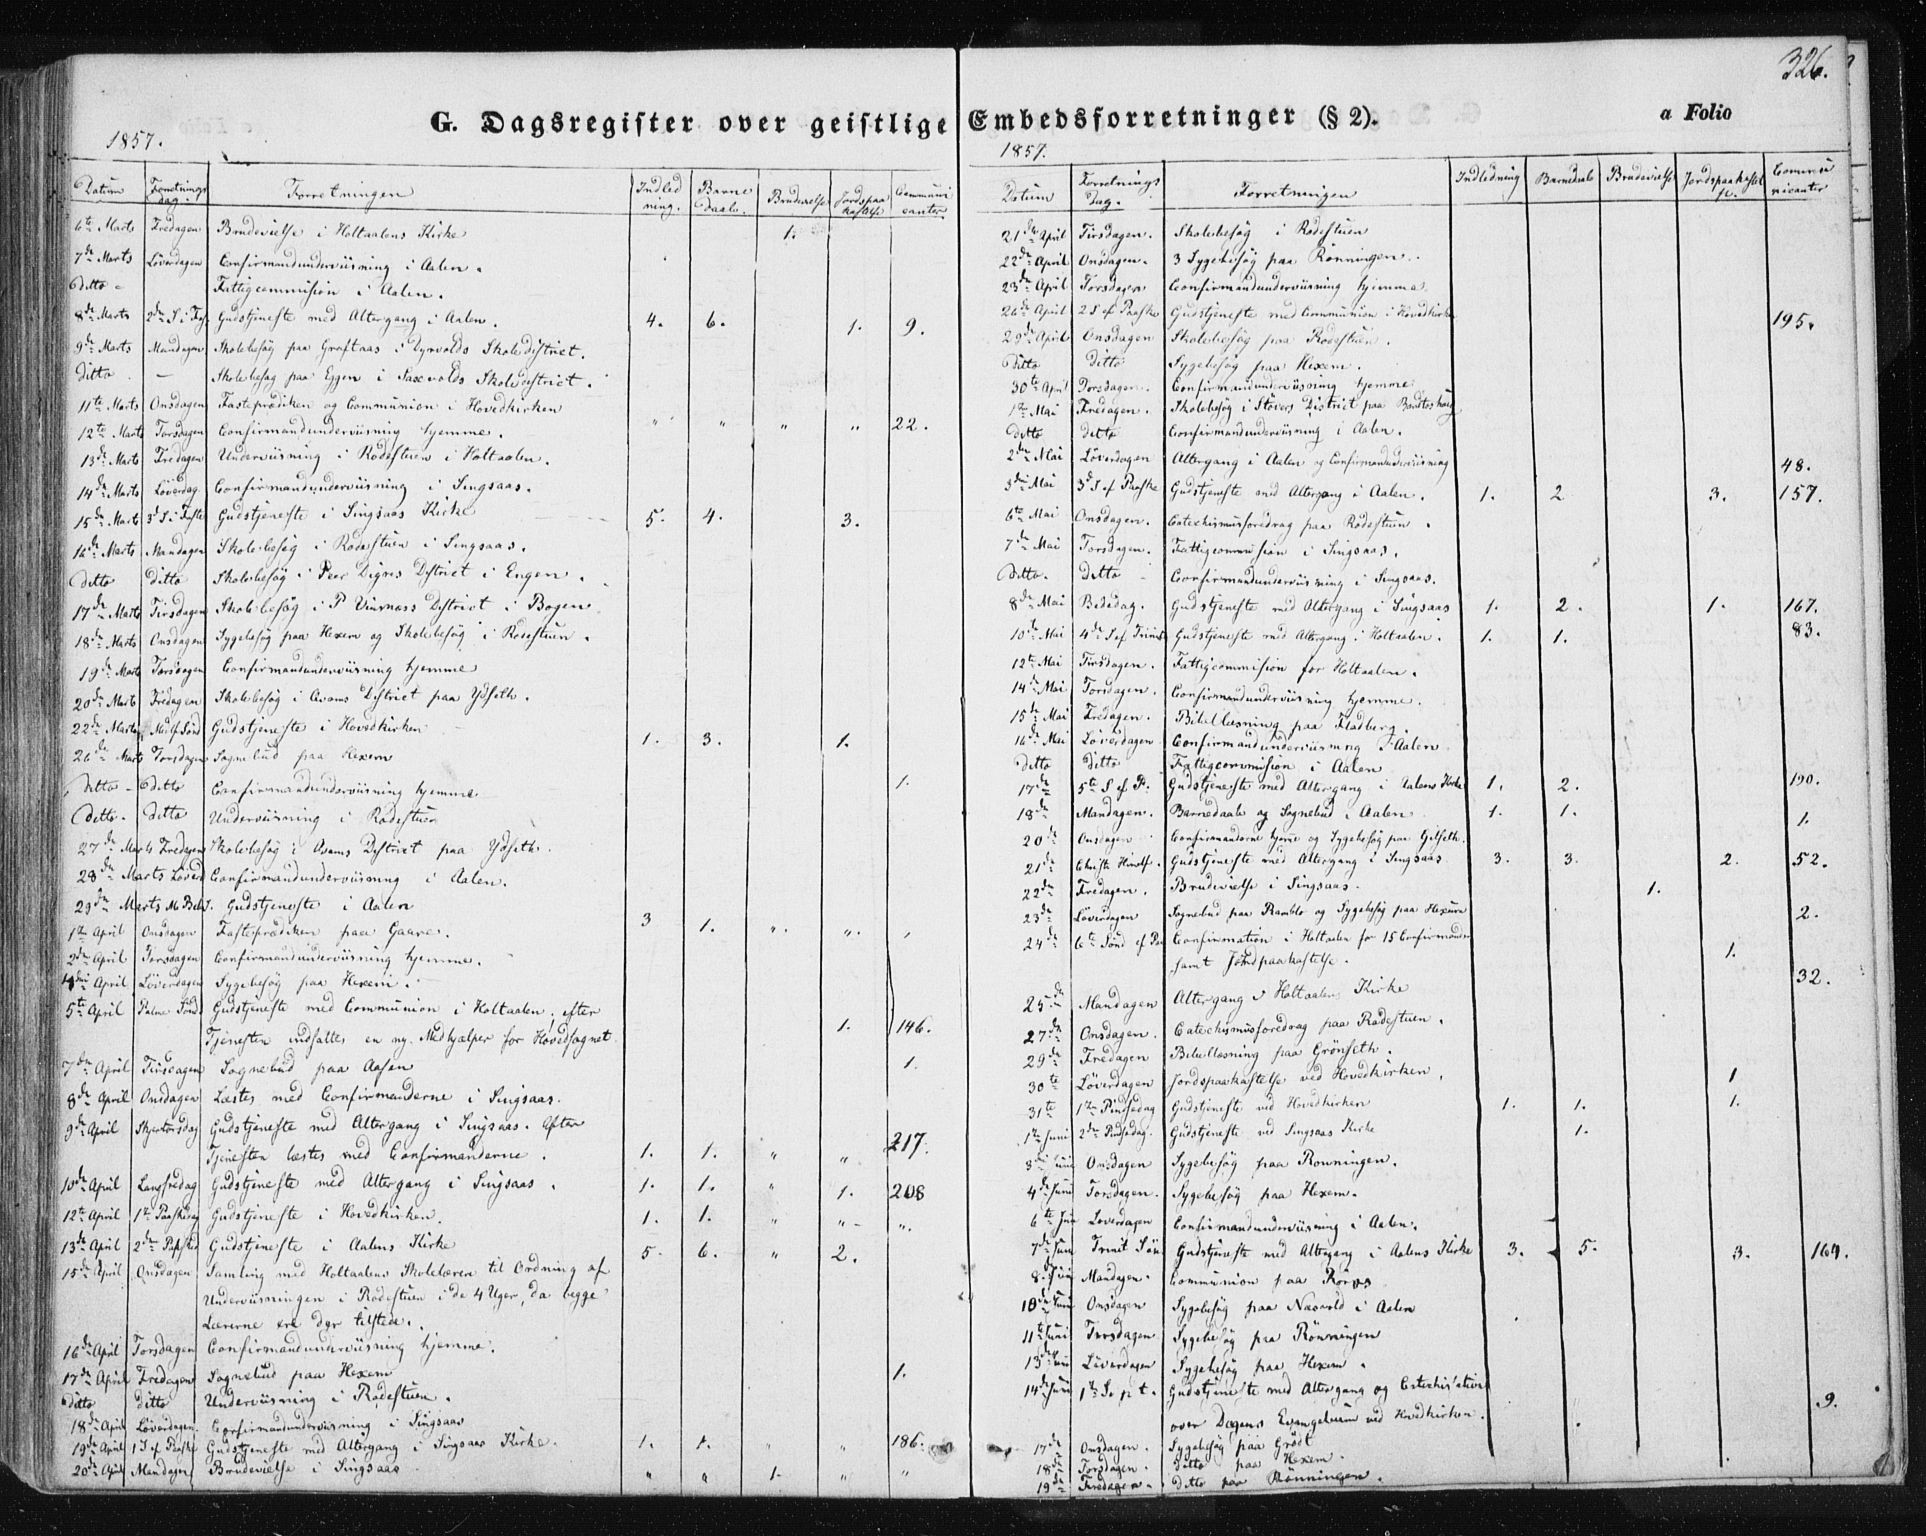 326.
G. Dagsregister over geistlige Embedsforretninger (§ 2).
a Folio
1857.
Datum Forretnings dag. Forretningen Indledning. Barnedaab. Brudevielse Jordspaakastelse Communicanter
6te Marts Fredagen Brudevielse i Holtaalens Kirke 1.
7de Marts Löverdagen Confirmandunderviisning i Aalen.
Ditto - Fattigcommision i Aalen.
8de Marts 2den S. i Fast Gudstjeneste med Altergang i Aalen. 4. 6. 1. 9.
9de Marts Mandagen Skolebesög paa Graftaas i Dyrvolds Skoledistrict.
Ditto - Skolebesøg paa Eggen i Saxvolds Skoledistrict.
11te Marts Onsdagen Fasteprædiken og Communion i Hovedkirken 22.
12te Marts Torsdagen Confirmandunderviisning hjemme. " " " "
13de Marts Fredagen Underviisning i Rodestuen i Holtaalen.
14de Marts Löverdag Confirmandunderviisning i Singsaas.
15de Marts 3d S. i Faste Gudstjeneste i Singsaas Kirke 5. 4. 3.
16de Marts Mandagen Skolebesög i Rodestuen i Singsaas.
Ditto Ditto Skolebesög i Peer Digres District i Engen.
17de Marts Tirsdagen Skolebesög i P District i Bogen
18de Marts Onsdagen Sygebesög paa Hexem og Skolebesög i Rodestuen.
19de Marts Torsdagen Confirmandunderviisning hjemme
20de Marts Fredagen Skolebesög i District paa Ydseth.
22de Marts Midf. Sönd Gudstjeneste i Hovedkirken 1. 3. 1.
26de Marts Torsdagen Sognebud paa Hexem 1.
Ditto - Ditto Confirmandunderviisning hjemme
Ditto - Ditto Underviisning i Rodestuen
27de Marts Fredagen Skolebesög i District paa Ydseth.
28de Marts Löverd Confirmandunderviisning i Aalen.
29de Marts Gudstjeneste i Aalen 3 1. " "
1te April Onsdagen Fasteprædiken paa Gaare.
2den April Torsdagen Confirmandunderviisning hjemme.
4de April Löverdagen Sygebesög paa Hexem.
5te April Palme Sönd Gudstjeneste med Communion i Holtaalen; efter
Tjenesten indsattes en ny Medhjælper for Hovedsognet 1. 146.
7de April Tirsdagen Sognebud paa Aasen 1.
8de April Onsdagen Læstes med Confirmanderne i Singsaas.
9de April Skjertorsdag Gudstjeneste med Altergang i Singsaas. Efter
Tjenesten læstes med Confirmanderne. 1. 1. " " 217.
10de April Langfredag Gudstjeneste med Altergang i Singsaas. 1. 1. " 1. 208
12te April 1te Paaskedag Gudstjeneste i Hovedkirken. 1. 1. " " "
13de April 2den Gudstjeneste i Aalens Kirke 5. 6. " 2.
15de April Onsdagen Samling med Holtaalens Skolelærere til Ordning af
Underviisningen i Rodestuen i de 4 Uger, da begge
Lærerne ere der tilstede.
16de April Torsdagen Confirmandunderviisning hjemme.
17de April Fredagen Sognebud paa Hexem 1.
Ditto Ditto Underviisning i Rodestuen.
18de April Löverdagen. Confirmandunderviisning i Singsaas
19de April 1 S ef Paaske Gudstjeneste med Altergang i Singsaas Kirke. 1. 1. " " 186.
20de April Mandagen Brudevielse i Singsaas " " 1. " "
1857.
Datum Forretnings Dag. Forretningen Indledning Barnedaab Brudevielse Jordspaakastelse. Communicanter
21de April Tirsdagen. Skolebesög i Rodestuen
22de April Onsdagen. 3 Sygebesög paa Rönningen.
23de April Torsdagen Confirmandunderviisning hjemme
26de April 2 S ef Paaske Gudstjeneste med Communion i Hovedkirken 195.
29de April Onsdagen Skolebesög paa Rodestuen.
Ditto Ditto Sygebesög paa Hexem.
30te April Torsdagen. Confirmandunderviisning hjemme
1te Mai Fredagen. Skolebesög i Stövers District paa
Ditto Ditto Confirmandunderviisning i Aalen.
2den Mai Löverdagen Altergang i Aalen og Confirmandunderviisning 48.
3die Mai 3d S ef Paaske Gudstjeneste med Altergang i Aalen. 1. 2 3. 157.
6te Mai Onsdagen. Catechismusforedrag paa Rodestuen.
7de Mai Torsdagen. Fattigcommision i Singsaas.
Ditto. Ditto Confirmandunderviisning i Singsaas.
8de Mai Bededag. Gudstjeneste med Altergang i Singsaas 1. 2. 1. 167.
10de Mai 4de S ef Gudstjeneste med Altergang i Holtaalen. 1. 1. 83.
12te Mai Tirsdagen. Fattigcommision for Holtaalen.
14de Mai Torsdagen. Confirmandunderviisning hjemme.
15de Mai Fredagen. Bibellæsning paa Fladberg.
16de Mai Löverdagen Confirmandunderviisning i Aalen
Ditto Ditto Fattigcommision i Aalen
17de 5te S ef P. Gudstjeneste med Altergang i Aalens Kirke 1. 2. 190.
18de Mandagen. Barnedaab og Sognebud i Aalen 1. 1. 1.
20de Onsdagen Confirmanderne hjeme og Sygebesög paa Gilseth.
21de Christi Himelf. Gudstjeneste med Altergang i Singsaas 3. 3. 2. 52.
22de Fredagen. Brudevielse i Singsaas. 1.
23de Löverdagen Sognebud paa Ramblo og Sygebesög paa Hexem 2.
24de 6te Sönd ef Pas Confirmation i Holtaalen for 15 Confirmander
samt Jordpaakastelse. 1.
25de Mandagen Altergang i Holtaalens Kirke 32.
27de Onsdagen. Catechismusforedrag paa Rodestuen.
29de Fredagen Bibellæsning paa Grönseth.
30te Löverdagen Jordspaakastelse ved Hovedkirken, 1
31te 1te Pindsedag Gudstjeneste ved Hovedkirken 1. 1. 1.
1te Juni 2den Pindsedag. Gudstjeneste ved Singsaas Kirke 1.
3die Juni Onsdagen Sygebesög paa Ronningen.
4de Juni Torsdagen. Sygebesög paa Hexem.
6te Juni Loverdagen Confirmandunderviisning i Aalen.
7de Juni Trinit Sön. Gudstjeneste med Altergang i Aalens Kirke 3. 5. 3. 164.
8de Juni Mandagen. Communion paa Röros
10de Juni Onsdagen Sygebesög paa Næsvold i Aalen
11te Juni Torsdagen Sygebesög paa Rönningen
13de Juni Löverdagen Sygebesög paa Hexem.
14de Juni 1te S. p t. Gudstjeneste med Altergang og Catechisation
over Dagens Evangelium ved Hovedkirken. 9.
17de Onsdagen. Sygebesög paa Grödt
18de Torsdagen. Ditto paa Hexem.
19de Fredagen. Ditto paa Rönningen.